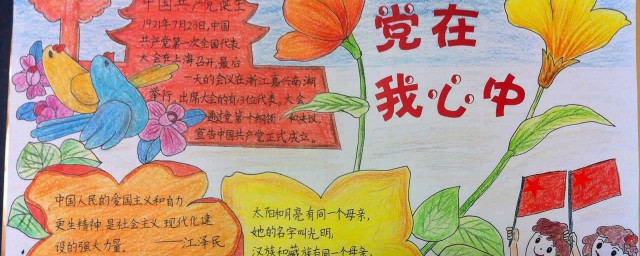 中国共产党诞生
1921年7月23日,中国
共产党第一次全国代表
大会在上海召开,最后
一天的会议在浙江嘉兴南湖
举行,出席大会的有13位代表,大会
通过党第十纲领和决议,
宣告中国共产党正式成立。
党在
我心中
中国人民的爱国主义和自力
更生精神是社会主义现代化建
设的强大力量。
——江泽民
太阳和月亮有同一个母亲,
她的名字叫光明,
汉族和藏族有同一个母亲,